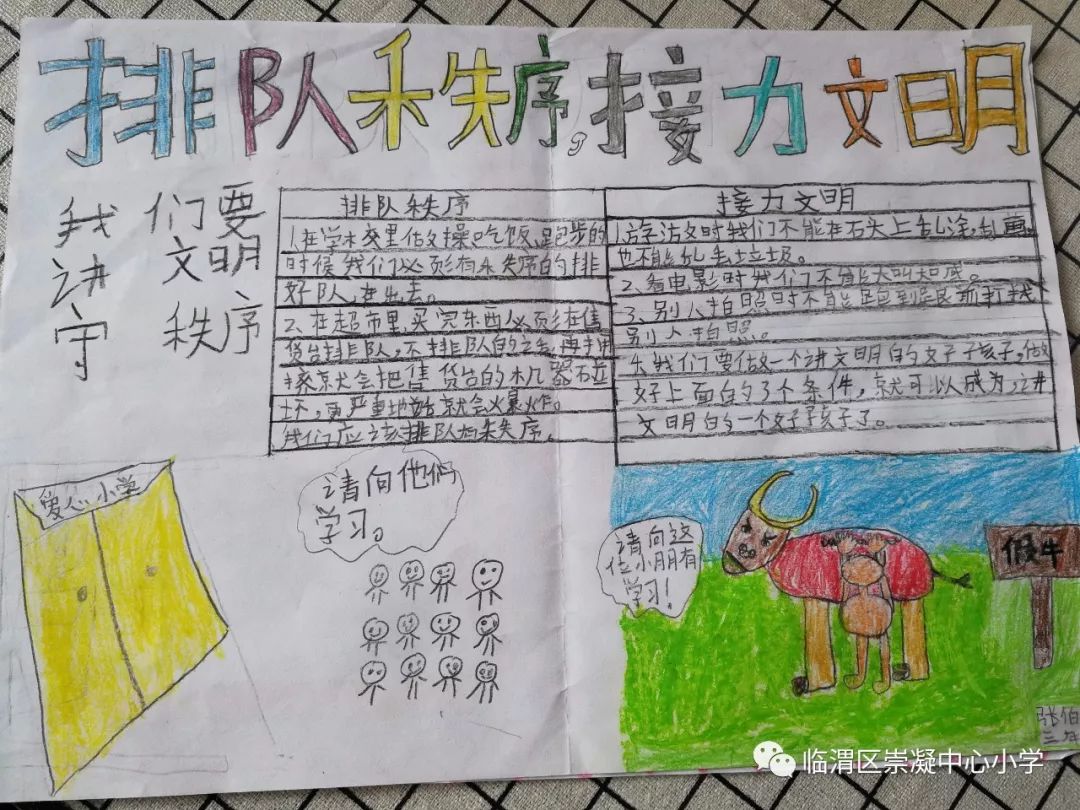 排队秩序。接力文明
我们要
讲文明
守秩序
排队秩序
1、在学校里做操、吃饭、跑步的
时候我们必须有秩序的排
好队,走出去。
2、在超市里,买完东西必须在售
货台排队,不排队的
就会把售货台的机器
坏,更严重地就会火爆炸。
我们应该排队有秩序。
接力文明
1、游访文时我们不能在石头上乱涂,乱画。
也不能乱丢垃圾。
2、看电影时我们不能大叫大
3、别人拍照时不能
别人拍照。
我们要做一个讲文明的好孩子,做
好上面的3个条件,就可以成为,讲
文明的一个好孩子了。
爱心小学
请向他们
学习。
请向这
位小朋有
学习!
假牛
张伯
三年
临渭区崇凝中心小学